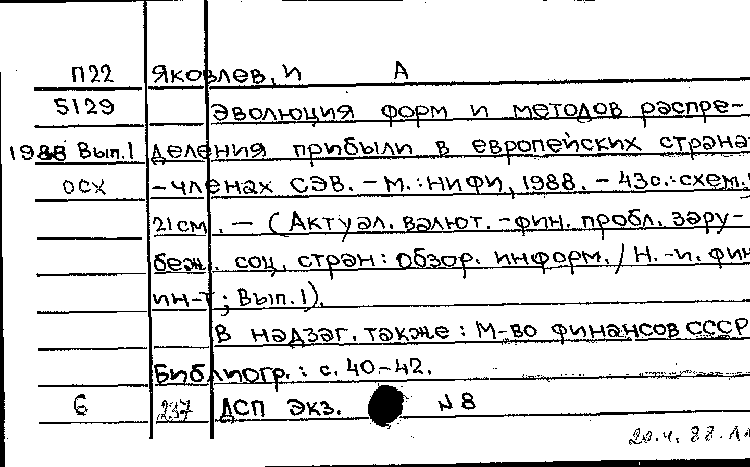 П22 Яковлев, И А
5129 Эволюция форм и методов распре-
1988 Вып.1 деления прибыли в европейских страна
ОСХ -членах СЭВ. - М.: НИФИ, 1988. - 43с.: схем.;
21см. - (Актуал. валют.-фин. пробл. зару-
беж. соц. стран: Обзор. информ. / Н.-и. фин
ин-т; Вып.1).
В надзаг. также: М-во финансов СССР
Библиогр.: с. 40-42.
6 237 ДСП Экз. N8